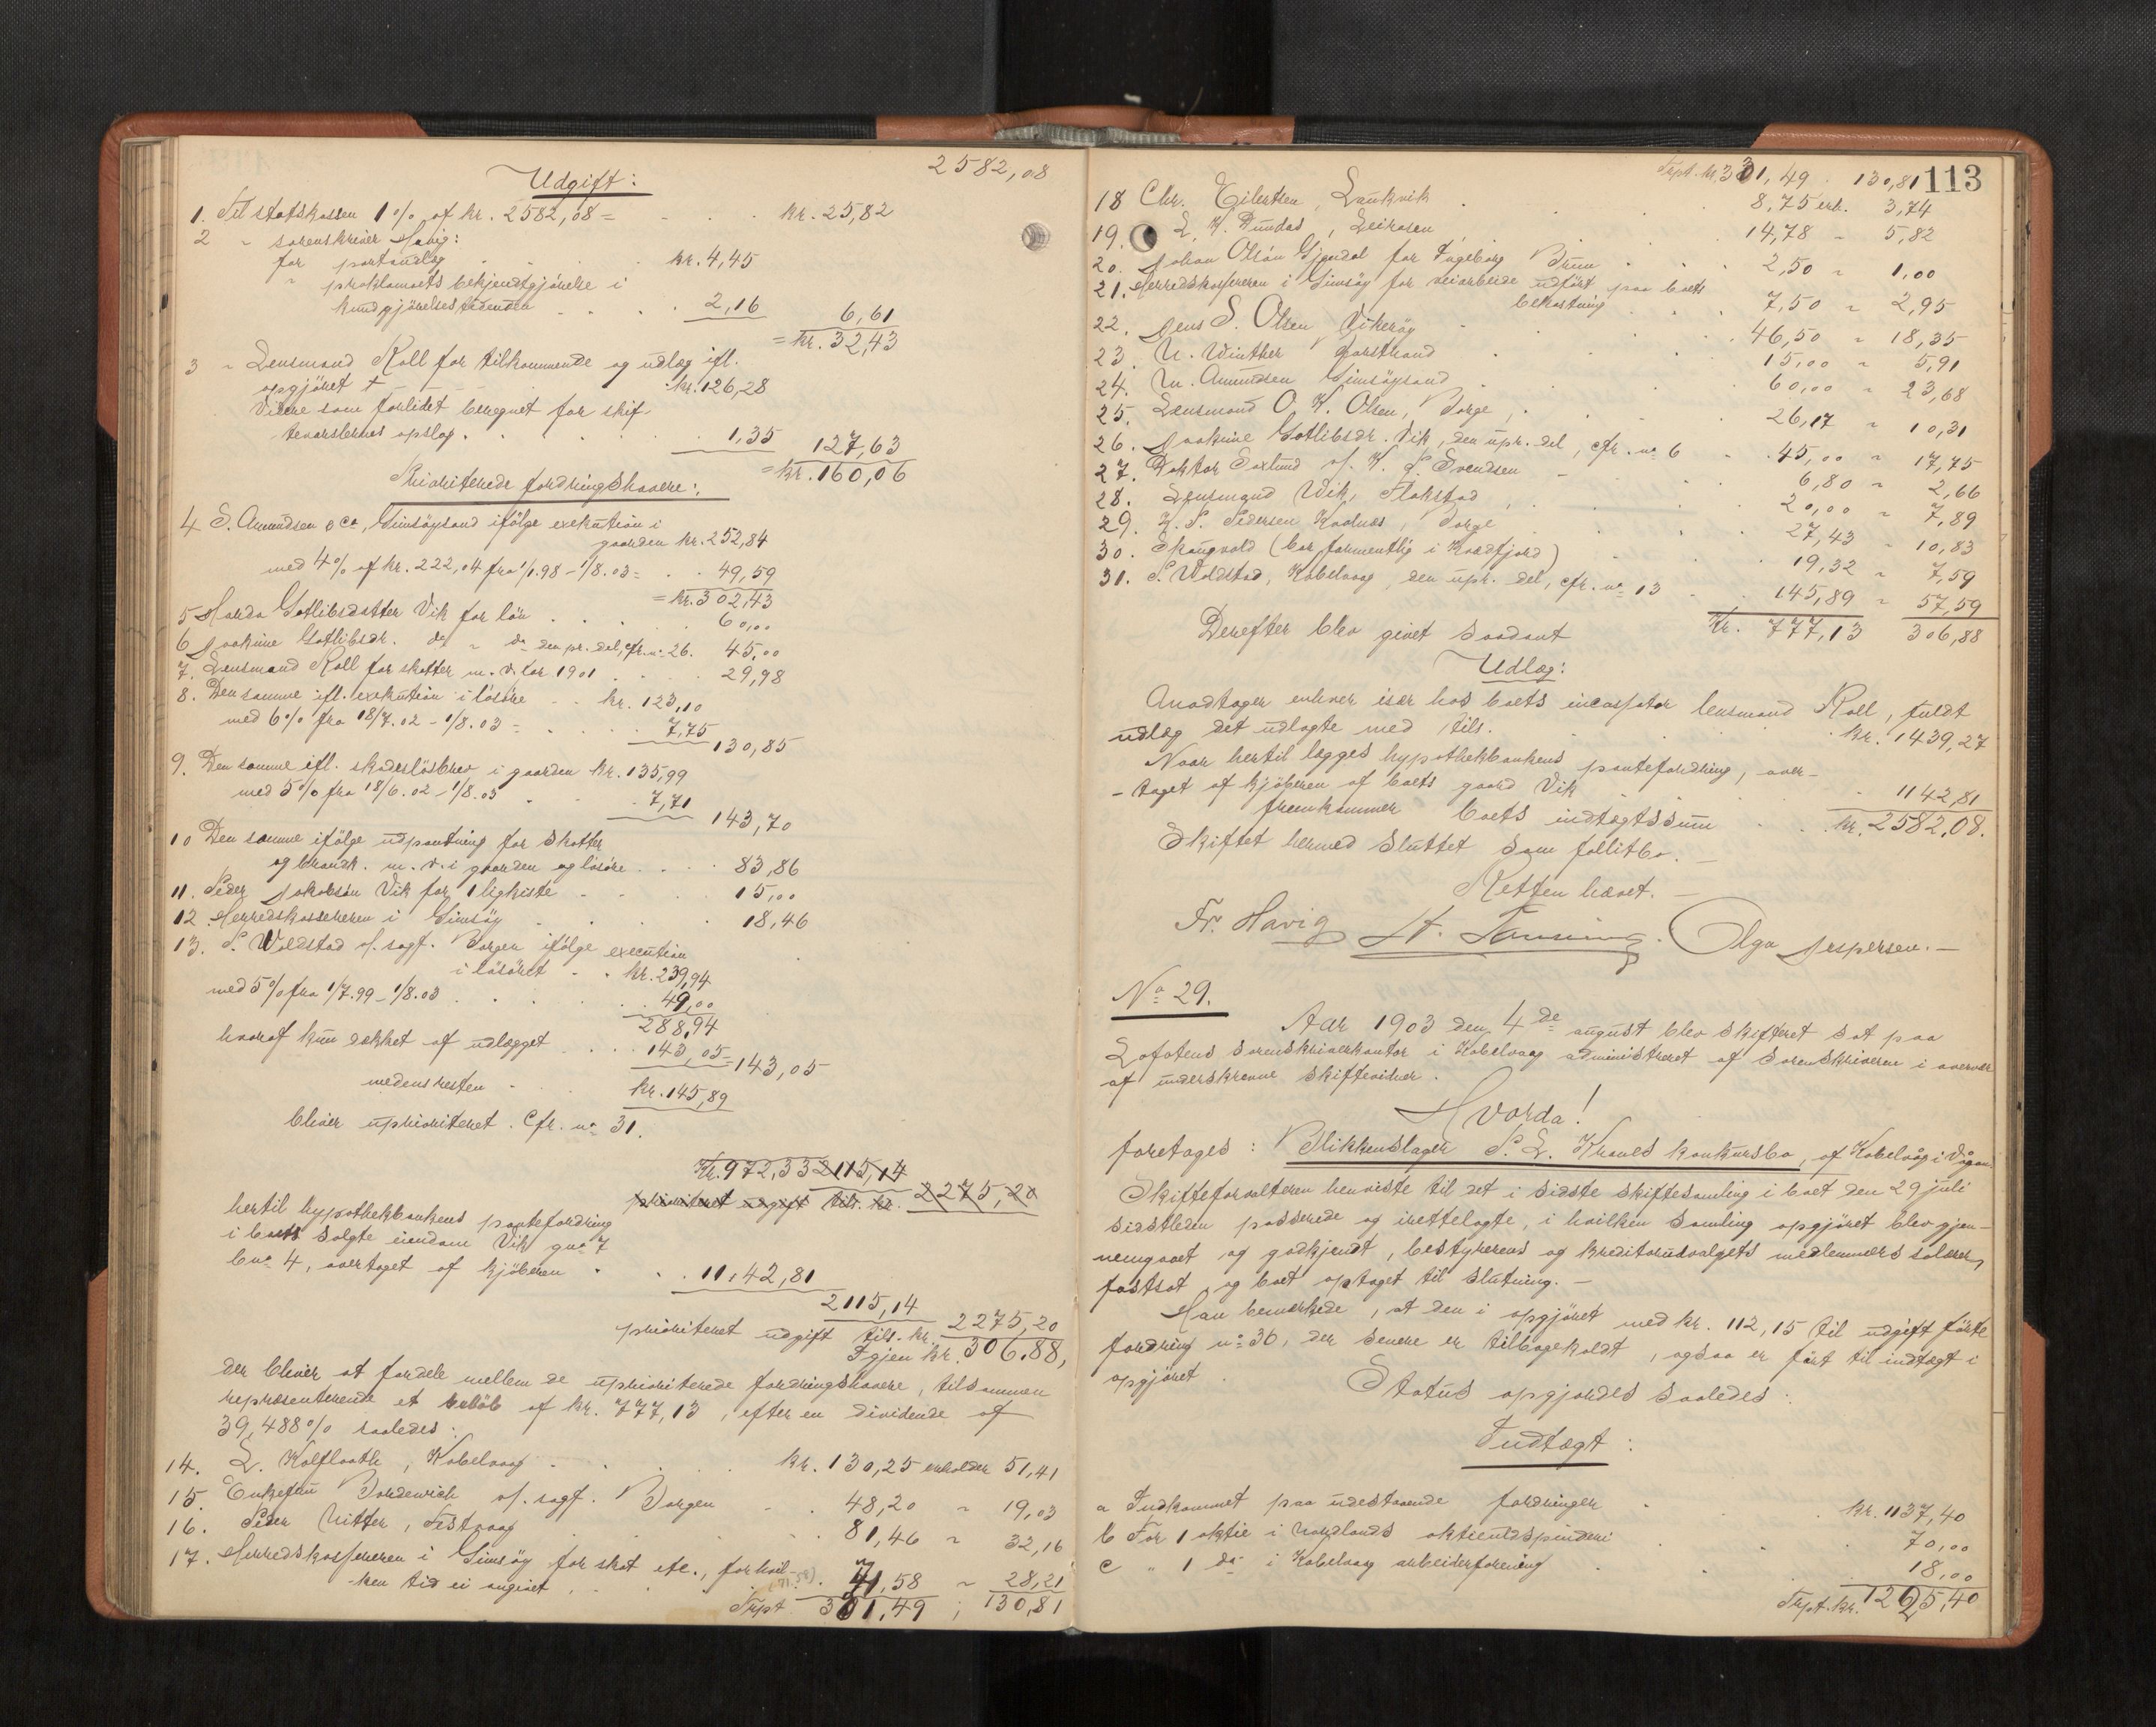 2582,08
Udgift:
1. Til statskassen 1% af kr. 2582,08 = kr. 25,82
2 " sorenskriver Havig:
for portoudlæg kr. 4,45
" proklamaets bekjendtgjörelse i
kundgjörelsestidenden 2,16 6,61
= kr. 32,43
3 " Lensmand Roll for tilkommende og udlæg ifl.
opgjöret kr. 126,28
Videre som forlidet beregnet for skif-
tevarslernes opslag. 1,35 127,63
= kr. 160,06
Prioriterede fordringshavere:
4 S. Amundsen & Co, Gimsöysand ifölge exekution i
gaarden kr. 252,84
med 4% af kr. 222,04 fra 1/1.98 - 1/8.03 = 49,59
= kr. 302,43
5 Handa Gotlibsdatter Vik for lön 60,00
6 Joakime Gotlibsdr. do " do den pr. del, cfr. no 26. 45,00
7. Lensmand Roll for skatter m. v. for 1901 29,98
8. Den samme ifl. exekution i lösöre kr. 123,10
med 6% fra 18/7.02 - 1/8.03 = 7,75
130,85
9. Den samme ifl. skadeslösbrev i gaarden kr. 135,99
med 5% fra 18/6.02 - 1/8.03 7,71
143,70
10 Den samme ifölge udpantning for skatter
og brandk. m. v. i gaarden og lösöre 83,86
11. Peder Jakobsön Vik for 1 ligkiste 15,00
12. Herredskassereren i Gimsöy 18,46
13. P. Woldstad o/. sagf. Borgen ifölge execution
i lösöret kr. 239,94
med 5% fra 1/7.99 - 1/8.03 49,00
288,94
hvoraf kun dækket af udlægget 143,05 = 143,05
medens resten kr. 145,89
bliver uprioriteret. Cfr. no 31.
Kr. 972,33 2115,14
prioriteret udgift tils. kr. 2275,20
hertil hypothekbankens pantefordring
i boets solgte eiendom Vik gno 7
bno 4, overtaget af kjöberen 1142,81
2115,14
prioriteret udgift tils. kr. 2275,20
Igjen kr. 306,88,
der bliver at fordele mellem de uprioriterede fordringshavere, tilsammen
repræsenterende et belöb af kr. 777,13, efter en dividende af
39,488% saaledes:
14. L. Kalflaath, Kabelvaag kr. 130,25 erholder 51,41
15. Enkefru Bordewich o/. sagf. Borgen 48,20 " 19,03
16. Peder Nitter, Festvaag 81,46 " 32,16
17. Herredskassereren i Gimsöy for skat etc., for hvil-
ken tid ei angivet 71,58 " 28,21
(71.58)
Trpt. 331,49 ; 130,81
Trpt. kr. 331,49 130,81 113
18 Chr. Eilertsen, Laukvik 8,75 erh. 3,74
19. L. K. Dundas, Leirosen 14,78 - 5,82
20. Johan Olsön Gjerdal for Ingeborg Brun 2,50 " 1,00
21. Herredskassereren i Gimsöy for veiarbeide udfört paa boets
bekostning 7,50 " 2,95
22. Jens S. Olsen Vikeröy 46,50 " 18,35
23. N. Winther Jorstrand 15,00 " 5,91
24. M. Amundsen Gimsöysand 60,00 " 23,68
25. Lensmand O. K. Olsen, Borge, 26,17 " 10,31
26. Joakime Gotlibsdr. Vik, den upr. del, cfr. no 6 45,00 " 17,75
27. Doktor Saxlund o/. K. L. Svendsen 6,80 " 2,66
28. Lensmand Wik, Flakstad 20,00 " 7,89
29. H. P. Pedersen Kadnes, Borge 27,43 " 10,83
30. Skaugvold (bor formentlig i Kvædfjord) 19,32 " 7,59
31. P. Woldstad, Kabelvaag, den upr. del, cfr. no 13 145,89 " 57,59
Kr. 777,13 306,88
Derefter blev givet saadant
Udlæg:
Modtager enhver især hos boets incassator lensmand Roll, fuldt
udlæg det udlagte med tils. kr. 1439,27
Naar hertil lægges hypothekbankens pantefordring, over-
-taget af kjöberen af boets gaard Vik 1142,81
fremkommer boets indtægtssum kr. 2582,08.
Skiftet hermed sluttet som fallitbo. —
Retten hævet. —
Fr. Havig H. Olga Jespersen. —
No 29.
Aar 1903 den 4de august blev skifteret sat paa
Lofotens sorenskriverkontor i Kabelvaag administreret af sorenskriveren i overvær
af underskrevne skiftevidner.
Hvorda!
foretoges: Blikkenslager P. L. Kranes konkursbo, af Kabelvåg i Vågan.
Skifteforvalteren henviste til det i sidste skiftesamling i boet den 29 juli
sidstleden passerede og irettelagte, i hvilken samling opgjöret blev gjen-
nemgaaet og godkjendt, bestyrerens og kreditorudvalgets medlemmers salærer
fastsat og boet optaget til slutning. —
Man bemærkede, at den i opgjöret med kr. 112,15 til udgift förte
fordring no 36, der senere er tilbagekaldt, ogsaa er fört til indtægt i
opgjöret.
Status opgjordes saaledes:
Indtægt:
a Indkommet paa udestaaende fordringer kr. 1137,40
b For 1 aktie i Nordlands aktieuldspinderi 70,00
c " 1 do i Kabelvaag arbeiderforening 18,00
Trpt. kr. 1225,40